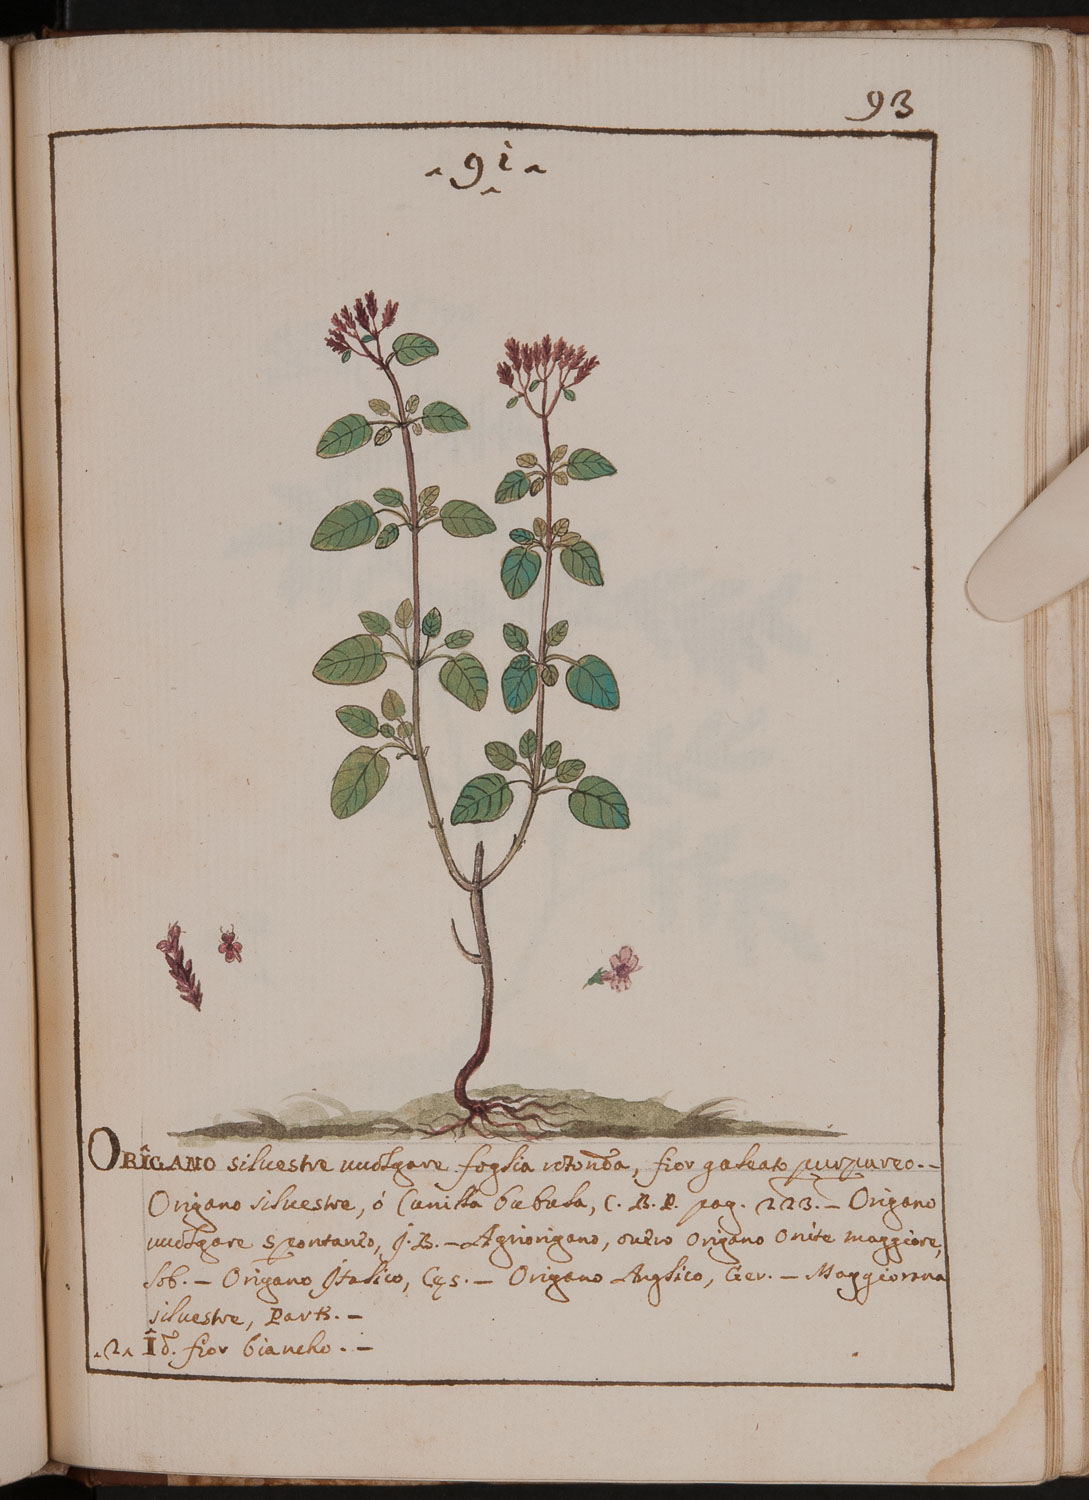 93
91
ORÎGANO siluestre uuolgare foglia rotonda, fior galeato purpureo.--
Origano siluestre, ó Cunilla bubula, C. B. P. pag. 223.- Origano
uuolgare spontaneo, J. B. - Agriorigano, ouero Origano Onite maggiore,
Lob. - Origano Jtalico, Cęs. - Origano Anglico, Ger. - Maggiorana
siluestre, Park. -
2 Îd. fior biancho. -